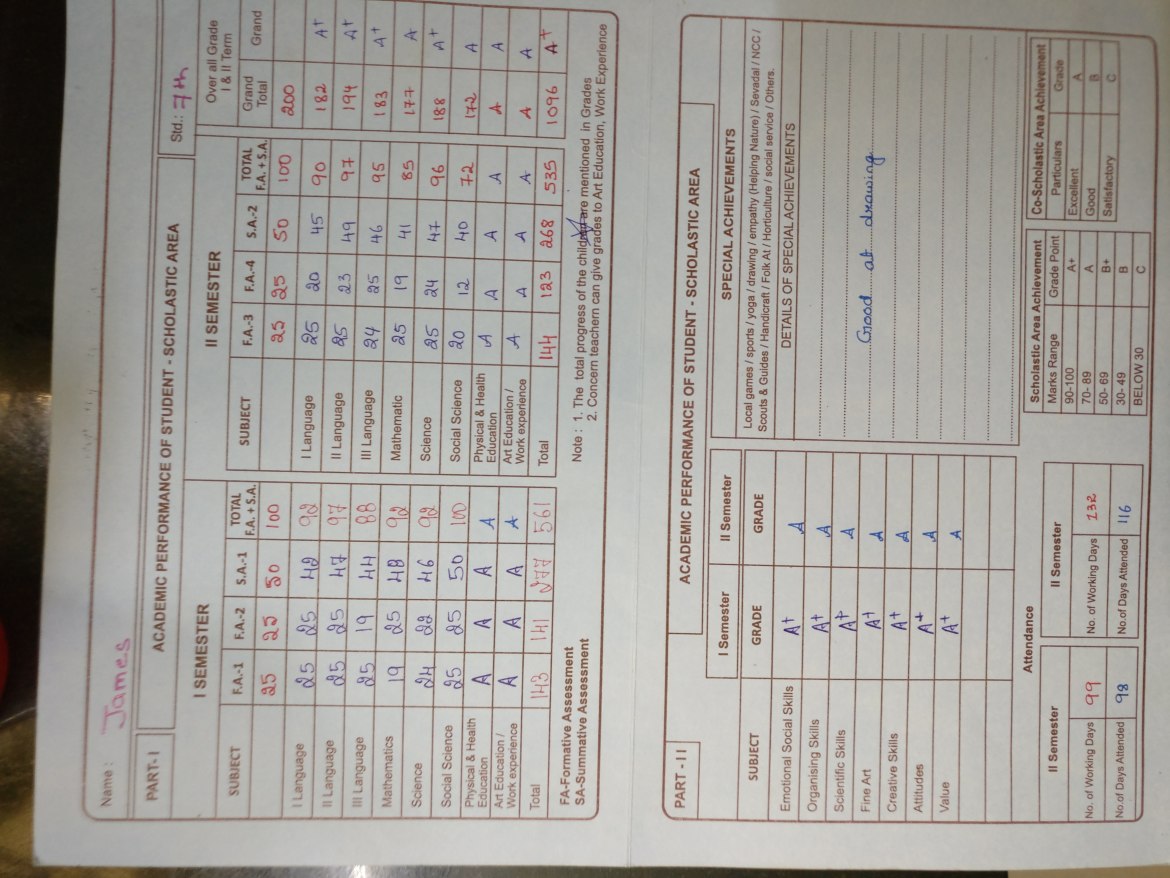 Name : James
PART- I ACADEMIC PERFORMANCE OF STUDENT - SCHOLASTIC AREA Std.: 7th
I SEMESTER
SUBJECT F.A.-1 F.A.-2 S.A.-1 TOTAL F.A. + S.A.
25 25 50 100
I Language 25 25 42 92
II Language 25 25 47 97
III Language 25 19 44 88
Mathematics 19 25 48 92
Science 24 22 46 92
Social Science 25 25 50 100
Physical & Health Education A A A A
Art Education / Work experience A A A A
Total 143 141 277 561
FA-Formative Assessment
SA-Summative Assessment
II SEMESTER Over all Grade I & II Term
SUBJECT F.A.-3 F.A.-4 S.A.-2 TOTAL F.A. + S.A. Grand Total Grand
25 25 50 100 200
I Language 25 20 45 90 182 A+
II Language 25 23 49 97 194 A+
III Language 24 25 46 95 183 A+
Mathematic 25 19 41 85 177 A
Science 25 24 47 96 188 A+
Social Science 20 12 40 72 172 A
Physical & Health Education A A A A A A
Art Education / Work experience A A A A A A
Total 144 123 268 535 1096 A+
Note : 1. The total progress of the are mentioned in Grades
2. Concern teachern can give grades to Art Education, Work Experience
PART - I I ACADEMIC PERFORMANCE OF STUDENT - SCHOLASTIC AREA
I Semester II Semester
SUBJECT GRADE GRADE
Emotional Social Skills A+ A
Organising Skills A+ A
Scientific Skills A+ A
Fine Art A+ A
Creative Skills A+ A
Attitudes A+ A
Value A+ A
SPECIAL ACHIEVEMENTS
Local games / sports / yoga / drawing / empathy (Helping Nature) / Sevadal / NCC /
Scouts & Guides / Handicraft / Folk At / Horticulture / social service / Others.
DETAILS OF SPECIAL ACHIEVEMENTS
Good at drawing
Attendance
II Semester II Semester
No. of Working Days 99 No. of Working Days 132
No.of Days Attended 98 No.of Days Attended 116
Scholastic Area Achievement
Marks Range Grade Point
90-100 A+
70- 89 A
50- 69 B+
30- 49 B
BELOW 30 C
Co-Scholastic Area Achievement
Particulars Grade
Excellent A
Good B
Satisfactory C